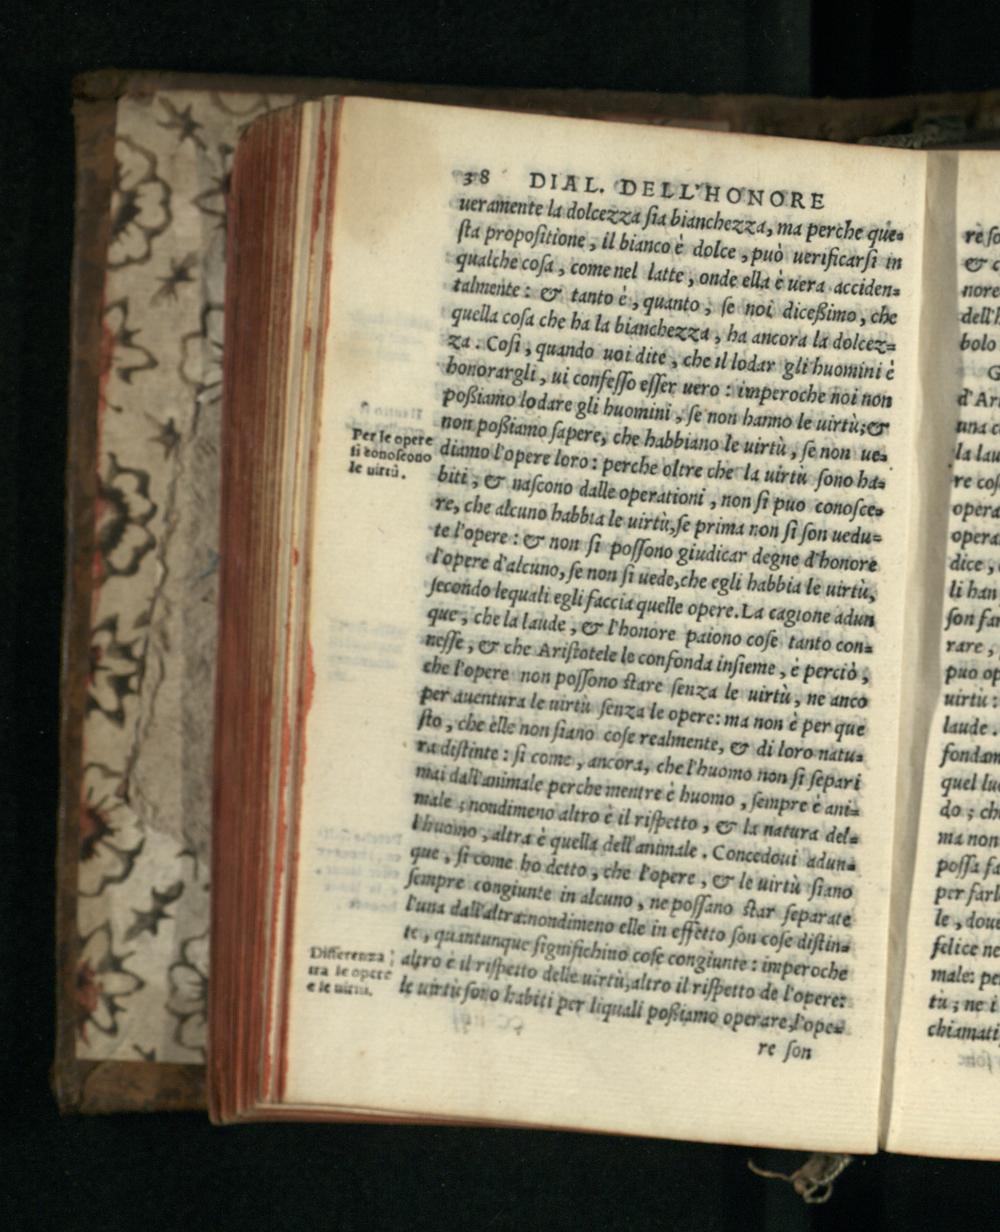 38 DIAL. DELL'HONORE
ueramente la dolcezza ſia bianchezza, ma perche que=
ſta propoſitione, il bianco è dolce, può uerificarſi in
qualche coſa, come nel latte, onde ella è uera acciden=
talmente: & tanto è, quanto, ſe noi diceßimo, che
quella coſa che ha la bianchezza, ha ancora la dolcez=
za. Coſi, quando uoi dite, che il lodar gli huomini è
honorargli, ui confeſſo eſſer uero: imperoche noi non
poßiamo lodare gli huomini, ſe non hanno le uirtù; &
non poßiamo ſapere, che habbiano le uirtù, ſe non ue=
diamo l'opere loro: perche oltre che la uirtù ſono ha=
biti, & naſcono dalle operationi, non ſi puo conoſce=
re, che alcuno habbia le uirtù, ſe prima non ſi ſon uedu=
te l'opere: & non ſi poſſono giudicar degne d'honore
l'opere d'alcuno, ſe non ſi uede, che egli habbia le uirtù,
ſecondo lequali egli faccia quelle opere. La cagione adun
que, che la laude, & l'honore paiono coſe tanto con=
neſſe, & che Ariſtotele le confonda inſieme, è perciò,
che l'opere non poſſono ſtare ſenza le uirtù, ne anco
per auentura le uirtù ſenza le opere: ma non è per que
ſto, che elle non ſiano coſe realmente, & di loro natu=
ra diſtinte: ſi come, ancora, che l'huomo non ſi ſepari
mai dall'animale perche mentre è huomo, ſempre è ani=
male; nondimeno altro è il riſpetto, & la natura del=
l'huomo, altra è quella dell'animale. Concedoui adun=
que, ſi come ho detto, che l'opere, & le uirtù ſiano
ſempre congiunte in alcuno, ne poſſano ſtar ſeparate
l'una dall'altra: nondimeno elle in effetto ſon coſe diſtin=
te, quantunque ſignifichino coſe congiunte: imperoche
altro è il riſpetto delle uirtù, altro il riſpetto de l'opere:
le uirtù ſono habiti per liquali poßiamo operare, l'ope=
re ſon
Per le opere
ſi conoſcono
le uirtù.
Differenza
tra le opere
e le uirtù.
re ſo
& c
nore
dell'h
bolo
G
d'Ari
una co
la lau
re coſ
opera
opera
dice,
li han
ſon fat
rare,
puo op
uirtù:
laude.
fondam
quel luo
do; ch
ma non
poſſa fa
per farl
le, doue
felice ne
male: pe
tù; ne i
chiamati